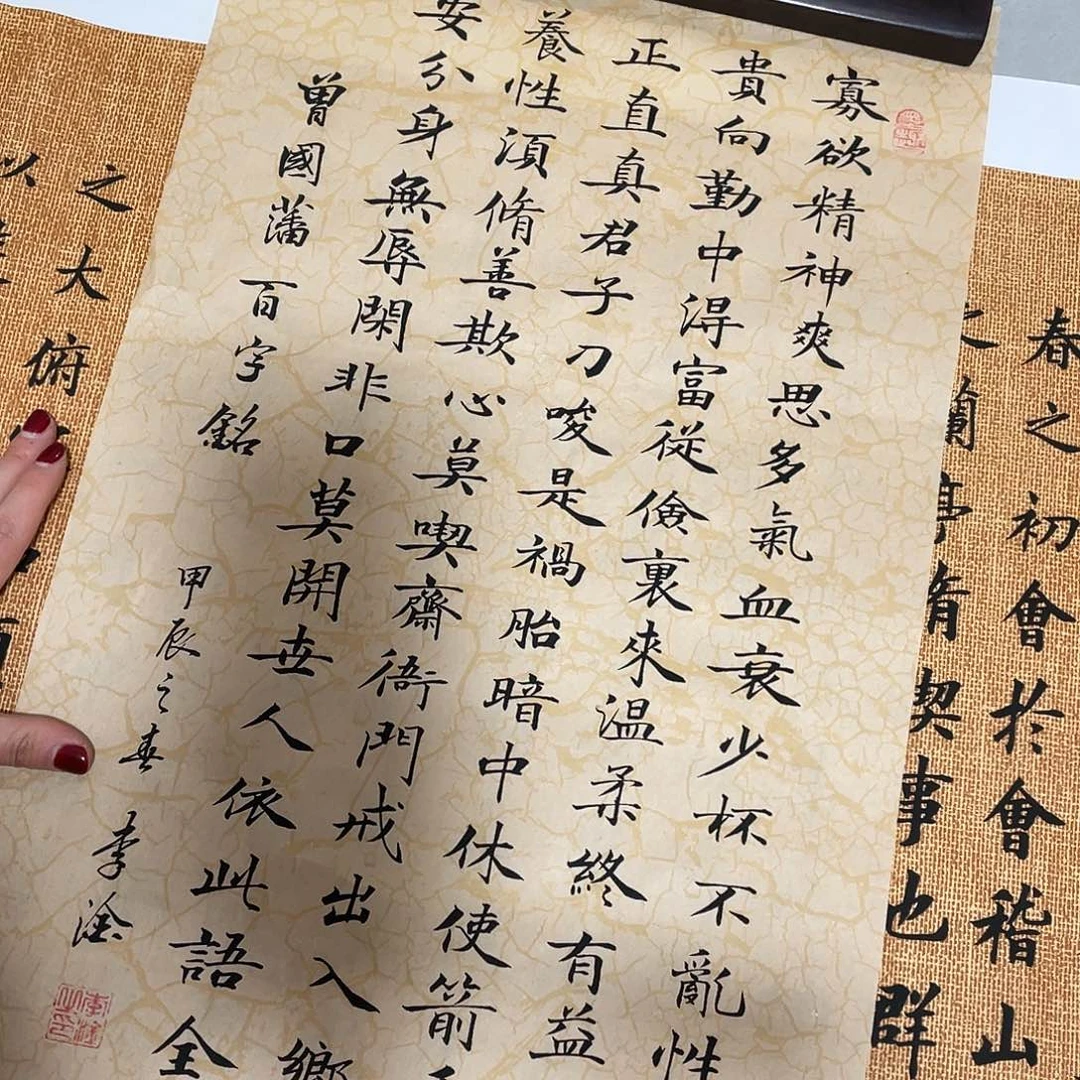 春之初會於會稽山
之蘭亭脩禊事也群
寡欲精神爽思多氣血衰少杯不亂性
貴向勤中淂富從儉裏來温柔終有益
正直真君子刀唆是禍胎暗中休使箭
養性湏脩善欺心莫喫齋衙門戒出入鄉
安分身無辱閑非口莫開世人依此語全
曾國藩百字銘
甲辰之春 李淦
之大俯
以